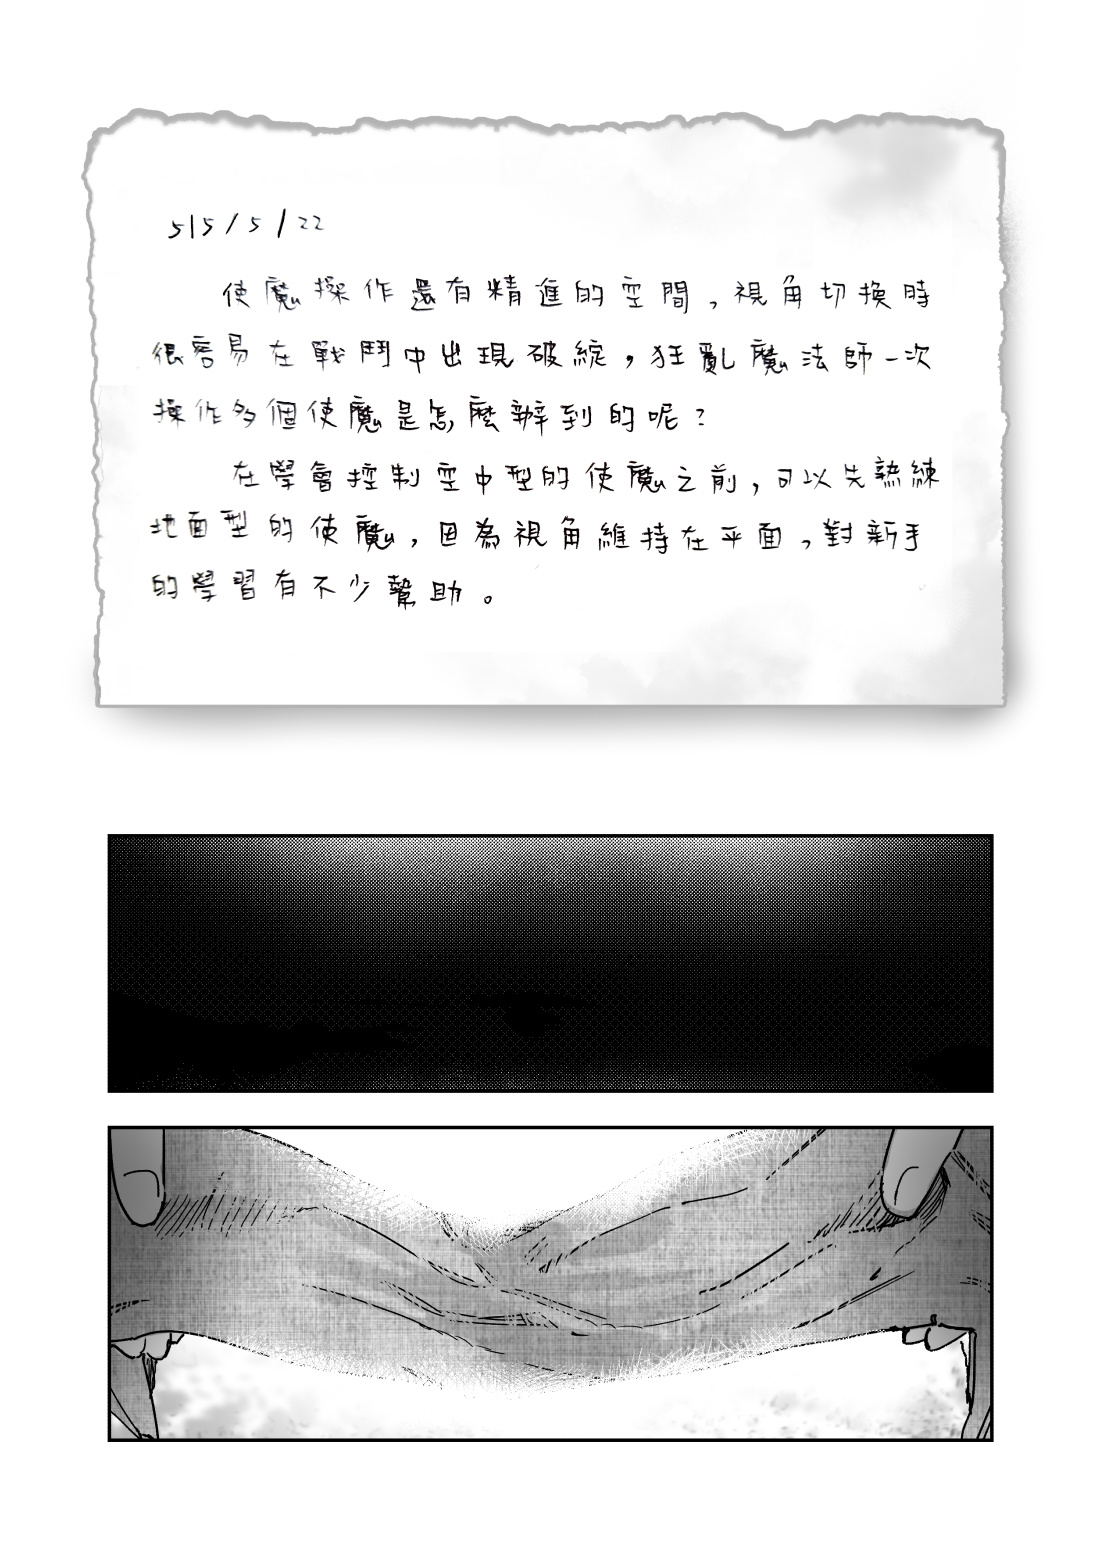 515/5/22
使魔操作還有精進的空間,視角切換時
很容易在戰鬥中出現破綻,狂亂魔法師一次
操作多個使魔是怎麼辦到的呢?
在學會控制空中型的使魔之前,可以先熟練
地面型的使魔,因為視角維持在平面,對新手
的學習有不少幫助。